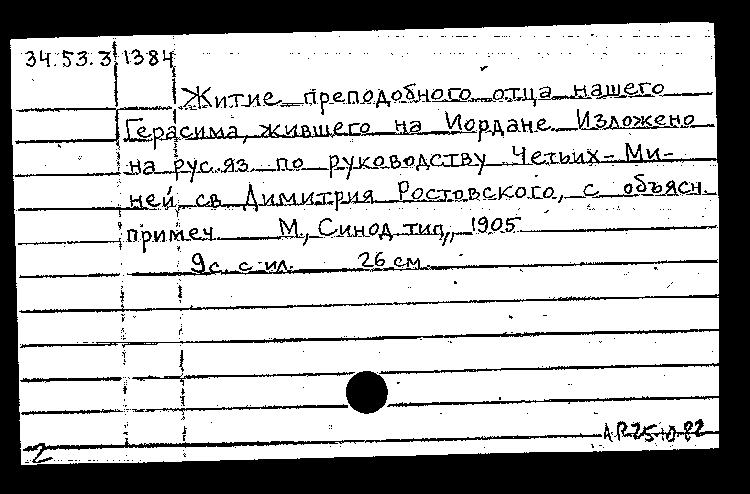 34.53.3 1384
Житие преподобного отца нашего
Герасима, жившего на Иордане. Изложено
на рус. яз. по руководству Четьих-Ми-
ней св. Димитрия Ростовского, с объясн.
примеч. М., Синод. тип., 1905.
9с. с ил. 26 см.
2